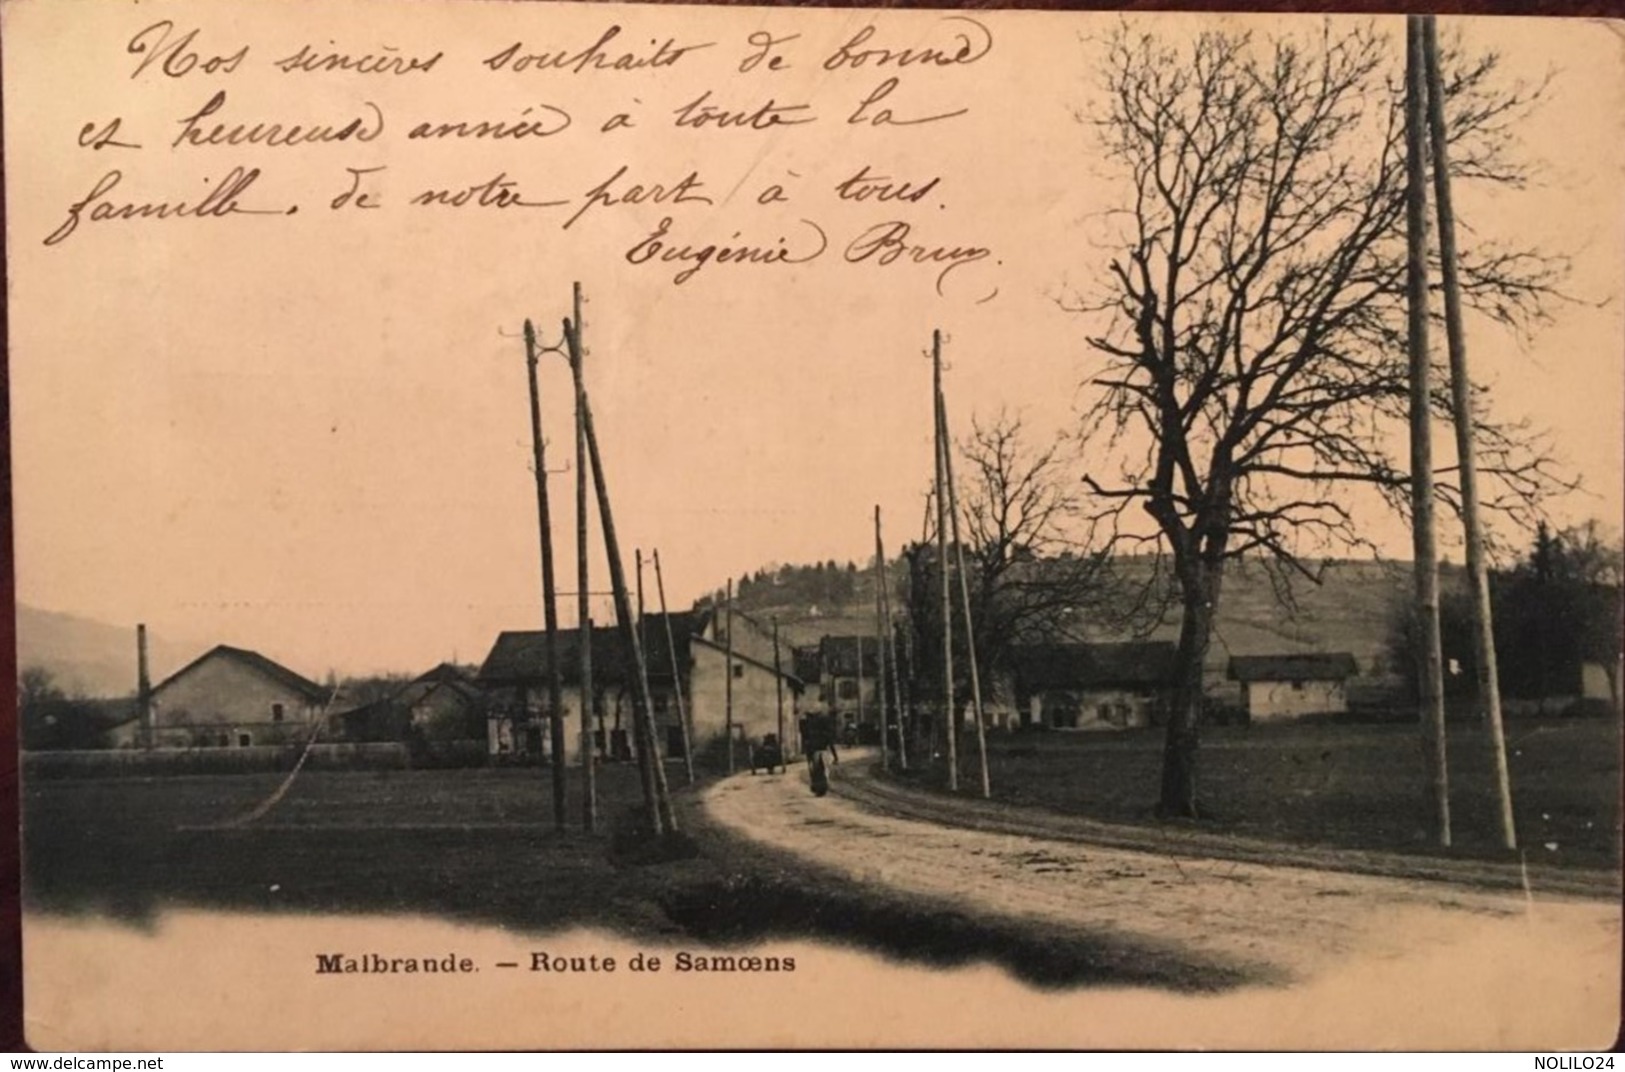 Nos sincères souhaits de bonne
et heureuse année à toute la
famille. de notre part à tous.
Eugénie Brun.
Malbrande. — Route de Samœns
www.delcampe.net
NOLILO24